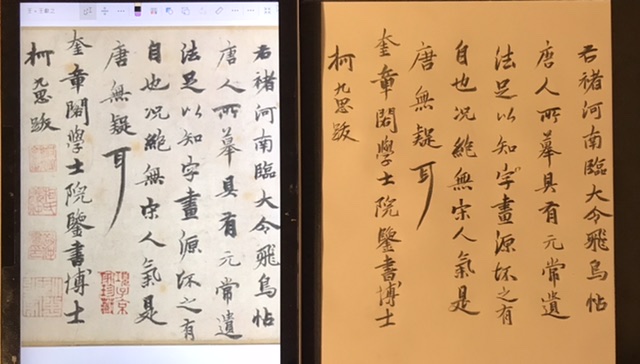 右褚河南臨大令飛鳥帖
唐人所摹具有元常遺
法足以知字畫源流之有
自也况絶無宋人氣是
唐無疑耳
奎章閣學士院鑒書博士
柯九思跋
項子京家珍藏
右褚河南臨大令飛鳥帖
唐人所摹具有元常遺
法足以知字畫源流之有
自也况絶無宋人氣是
唐無疑耳
奎章閣學士院鑒書博士
柯九思跋